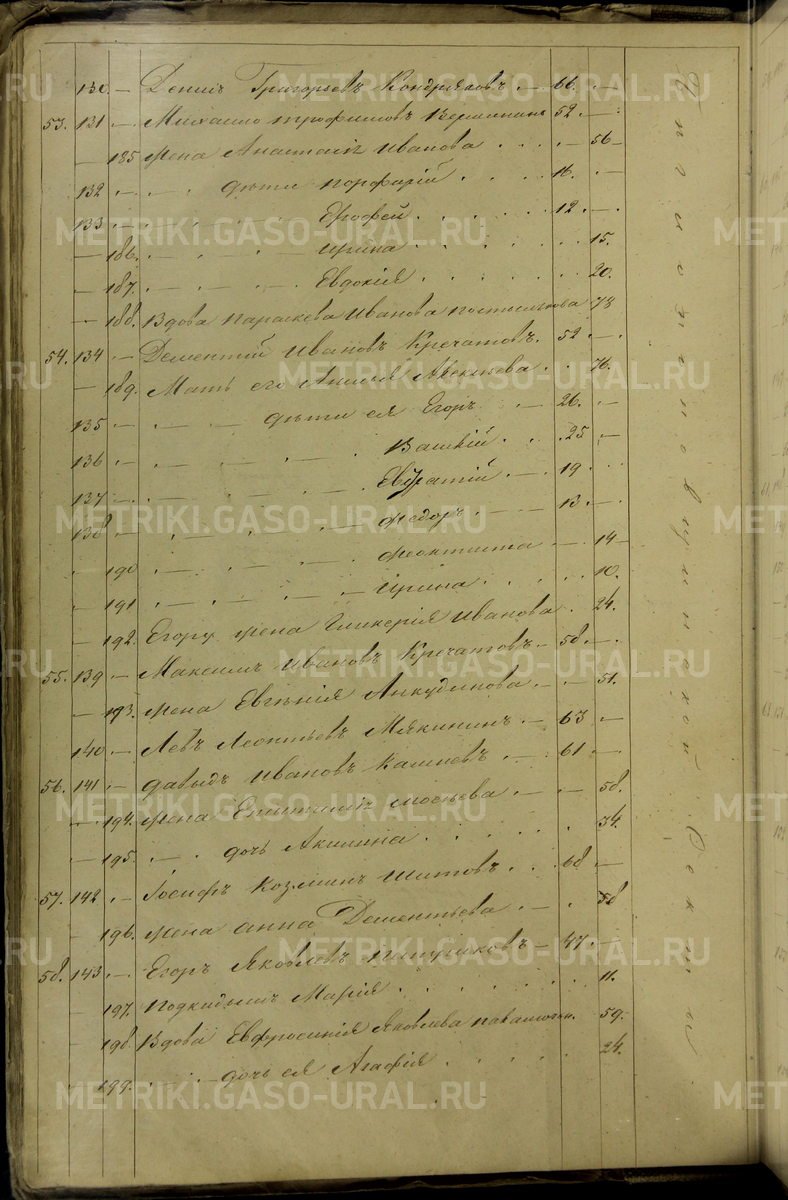 130. — Денисъ Григорьевъ Кондряковъ — 66. —
53. 131 — Михайло Трофимовъ Вершининъ 52. —
— 185 жена Анастасія Иванова . . . — 56 —
132 — . — . дѣти Порфирій . . . 16. —
133 — . — Ерофей . . . 12. —
— 186. — . — Ирина . . . 15.
— 187. — . — Евдокія . . . 20.
— 188. Вдова Параскева Иванова 78
54. 134. — Дементій Ивановъ Кречатовъ. 52 —
— 189. Мать его Авекѣева . . 76.
135 — . — дѣти ея Егоръ — 26. —
136 — . — Василій . . 25 —
137 — . — Евѳратій — 19 . .
138 — . — Ѳедоръ — 13 —
190 — . — Ѳеоктиста — 14 —
191 — . — Ирина . . . 10.
— 192. Егору жена Гликерія Иванова . 24.
55. 139 — Максимъ Ивановъ Кречатовъ — 58 —
— 193. жена Евгѣнія Анкудинова — — 51.
140 — Левъ Леонтьевъ Мякининъ — 63 —
56. 141 — Давыдъ Ивановъ — 61 —
— 194. жена — — 58.
— 195. — . дочь Акилина . . . 34.
57. 142 — Іосифъ Козминъ Шитовъ . . 68 —
— 196. жена Анна Дементьева — . 58
58. 143. — Егоръ Яковлевъ — 47. —
— 197. подкидышъ Марія . . . 11.
— 198. Вдова Евфросинія Яковлева 59.
199. — . — дочь ея Агафія . . . 24.
секты
METRIKI.GASO-URAL.RU